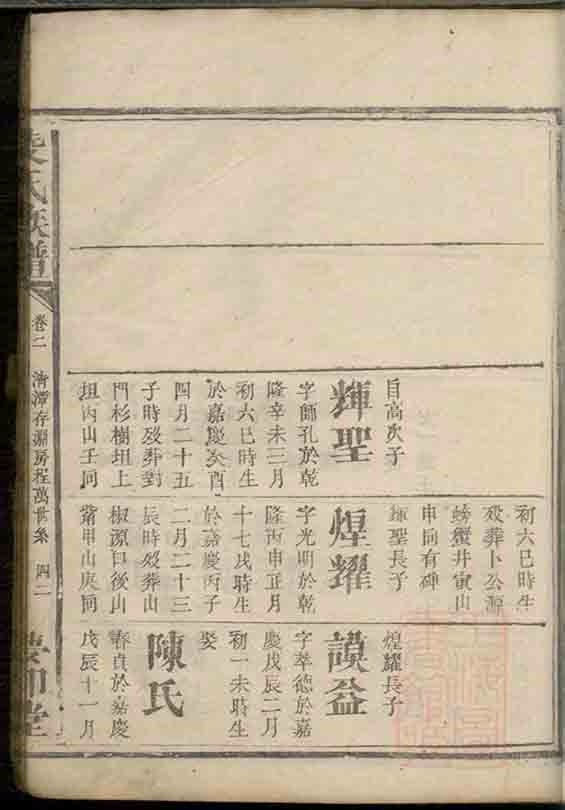 自高次子
輝聖
字師孔於乾
隆辛未三月
初六巳時生
於嘉慶癸酉
四月二十五
子時歿葬對
門杉樹坦上
坦丙山壬向
初六巳時生
歿葬卜公源
螃蟹井寅山
申向有碑
輝聖長子
煌耀
字光明於乾
隆丙申正月
十七戌時生
於嘉慶丙子
二月二十三
辰時歿葬山
椒源口後山
甲山庚向
煌耀長子
謨益
字萃德於嘉
慶戊辰二月
初一未時生
娶
陳氏
春貞於嘉慶
戊辰十一月
氏族譜
卷二
清潭存淵房程萬世系
四二
堂